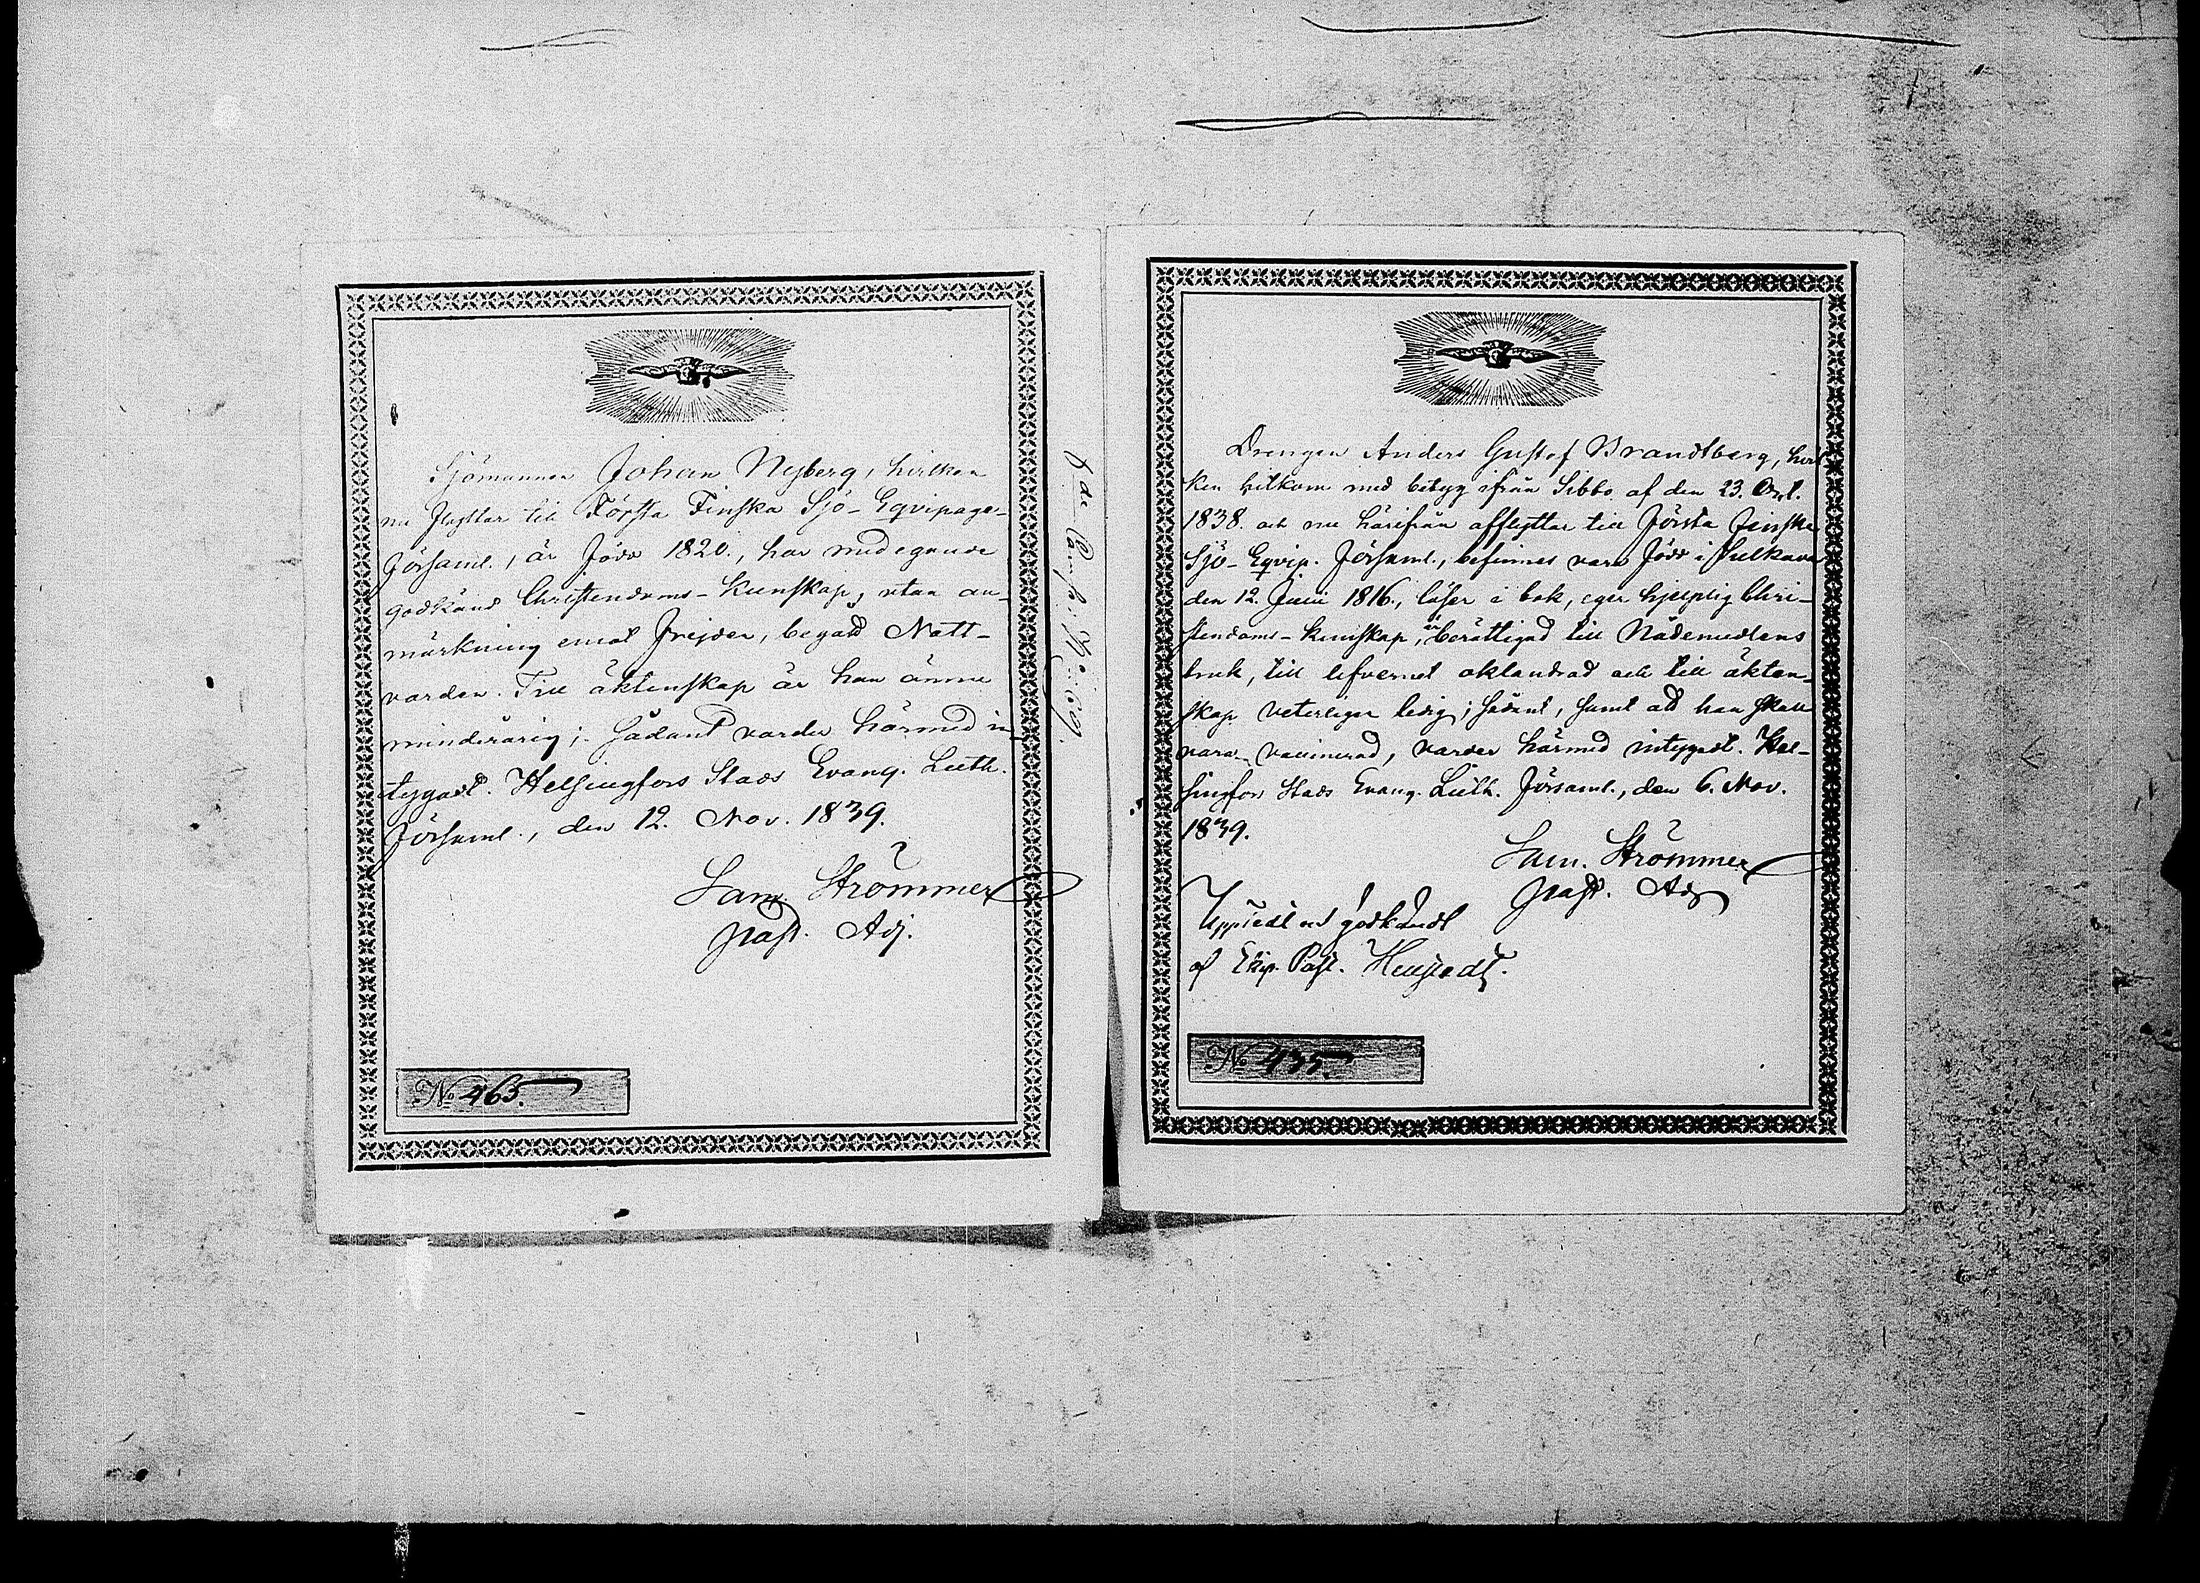 Sjömannen Johan Nyberg, hvilken
nu flyttar till Första Finska Sjö-Eqvipage-
Församl., är född 1820., har nedegande
godkänd Christendoms-kunskap, utan an-
märkning emot frejden, begått Natt-
varden. Till äktenskap är han ännu
minderårig; Sådant varder härmed in-
tygadt. Helsingfors Stads Evang. Luth.
Församl., den 12. Nov. 1839.
Sam. Strömmer
Past. Adj.
No 465.
Drengen Anders Gustaf Brandtberg, hvil-
ken hitkom med betyg ifrån Sibbo af den 23. Oct.
1838. och nu härifrån afflyttar till Första Finska
Sjö-Eqvip. Församl., befinnes vara född i Sulkava
den 12. Junii 1816., läser i bok, eger hjelplig Chri-
stendoms-kunskap, är berättigad till Nådemedlens
bruk, till lefvernet oklandrad och till äkten-
skap veterligen ledig; Sådant, samt att han skall
vara vaccinerad, varder härmed intygadt. Hel-
singfors Stads Evang. Luth. Församl., den 6. Nov.
1839.
Sam. Strömmer
Past. Adj.
Uppvist och godkändt
af Ekip. Past.
No 435.